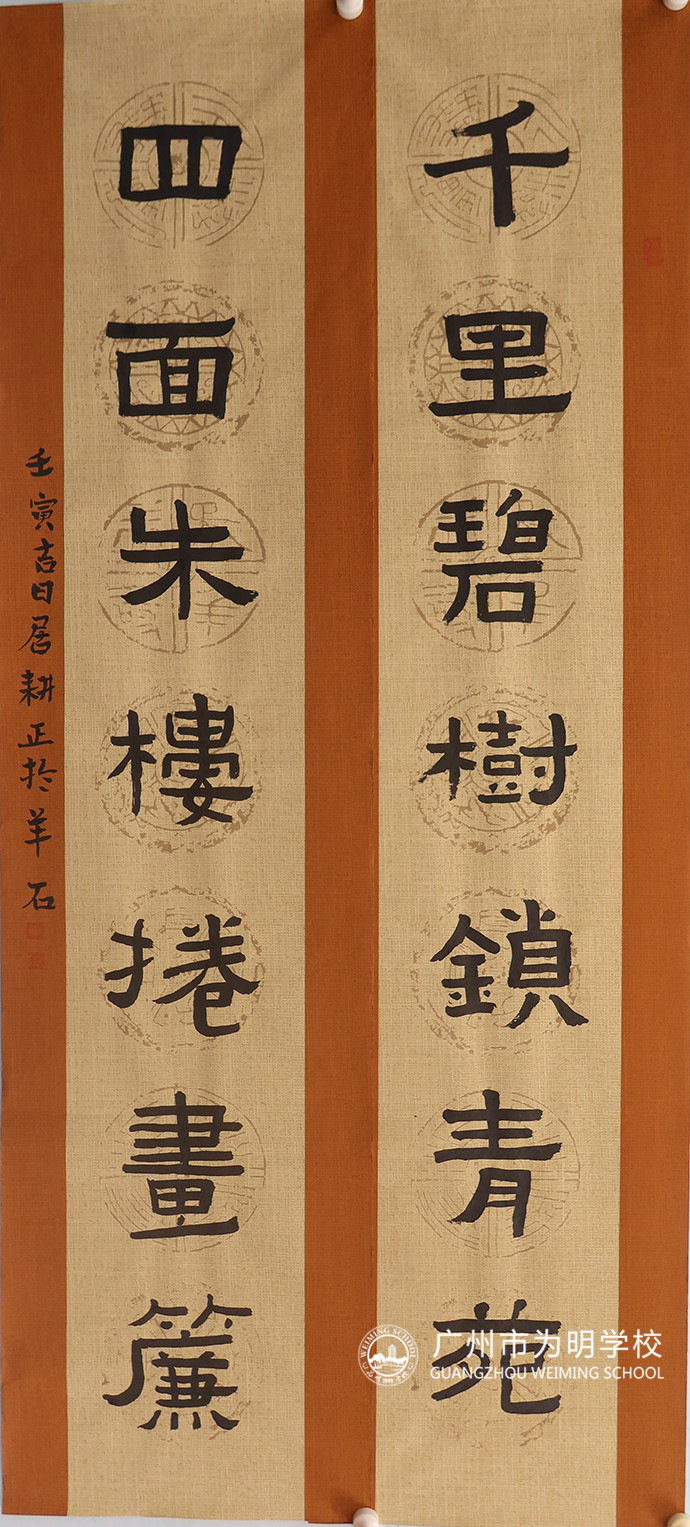 千里碧樹鎖青苑
四面朱樓捲畫簾
壬寅吉日居耕正於羊石
广州市为明学校
GUANGZHOU WEIMING SCHOOL
WEIMING SCHOOL